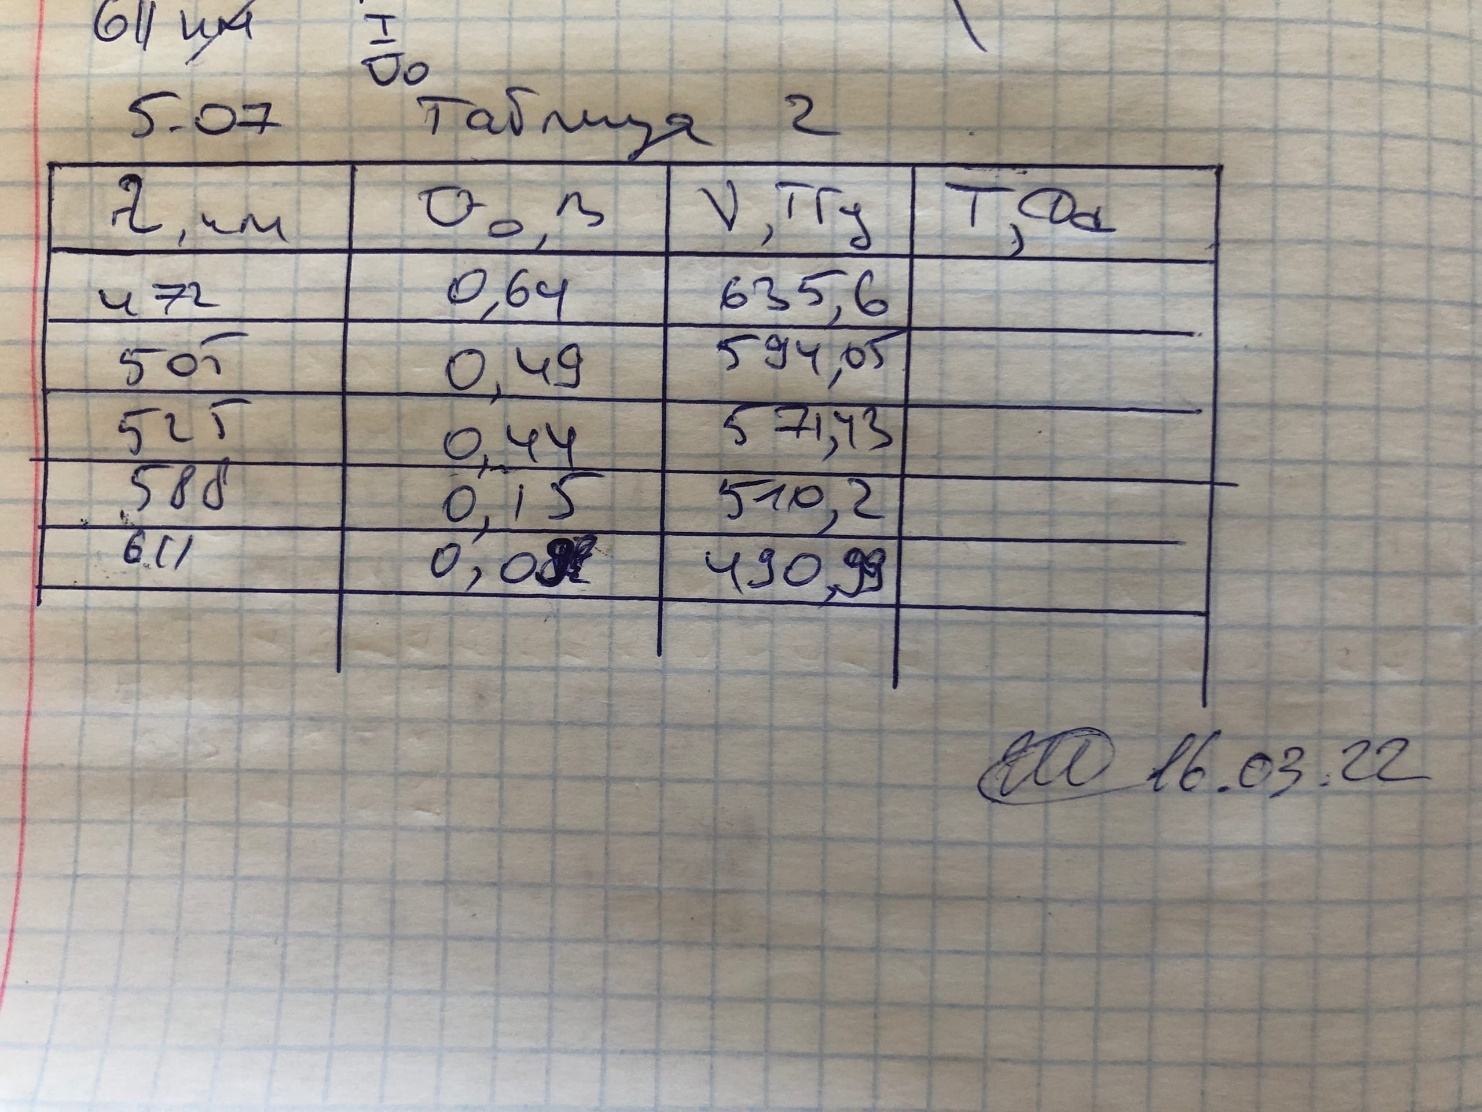 611 нм
I
U0
5.07 Таблица 2
λ, нм U0, В ν, ТГц T, Дж
472 0,64 635,6
505 0,49 594,05
525 0,44 571,43
588 0,15 510,2
611 490,99
16.03.22